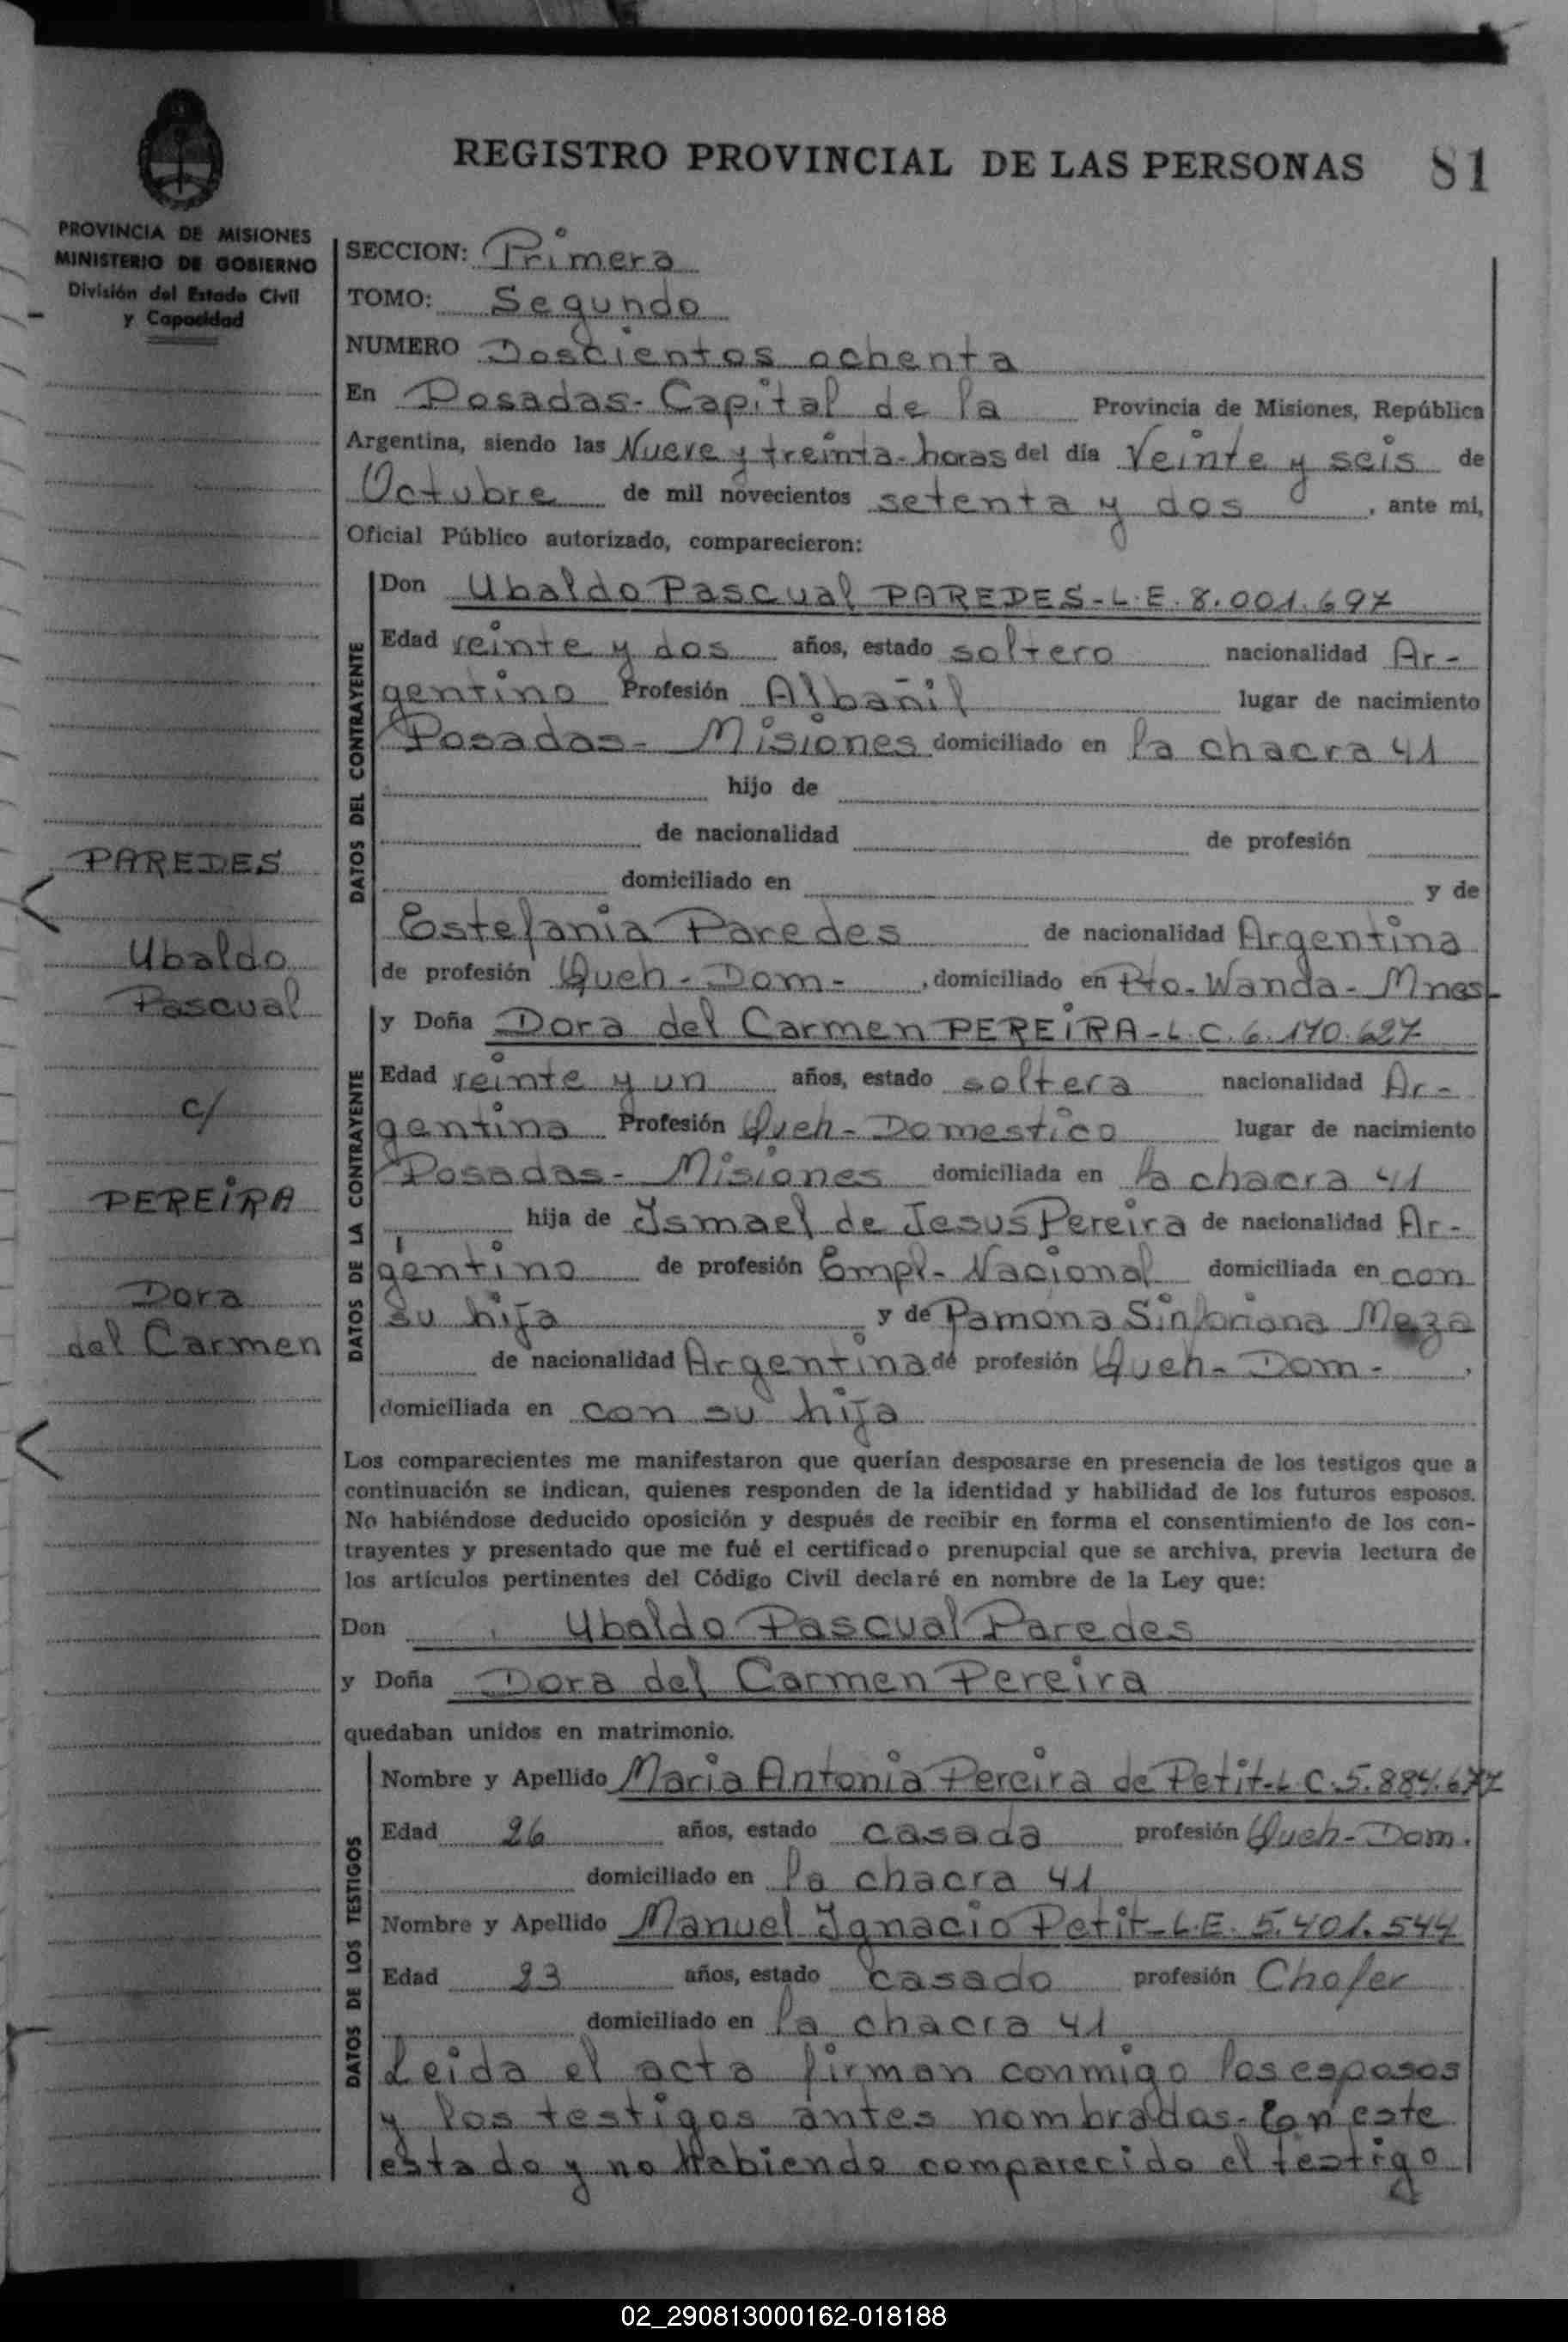 REGISTRO PROVINCIAL DE LAS PERSONAS 81
PROVINCIA DE MISIONES
MINISTERIO DE GOBIERNO
División del Estado Civil
y Capacidad
PAREDES
Ubaldo
Pascual
c/
PEREIRA
Dora
del Carmen
SECCION: Primera
TOMO: Segundo
NUMERO Doscientos ochenta
En Posadas - Capital de la Provincia de Misiones, República
Argentina, siendo las Nueve y treinta - horas del día Veinte y seis de
Octubre de mil novecientos setenta y dos, ante mi,
Oficial Público autorizado, comparecieron:
DATOS DEL CONTRAYENTE
Don Ubaldo Pascual PAREDES - L.E. 8.001.697
Edad veinte y dos años, estado soltero nacionalidad Ar-
gentino Profesión Albañil lugar de nacimiento
Posadas - Misiones domiciliado en la chacra 41
hijo de
de nacionalidad de profesión
domiciliado en y de
Estefania Paredes de nacionalidad Argentina
de profesión Queh - Dom - , domiciliado en Pto. Wanda - Mnes -
DATOS DE LA CONTRAYENTE
y Doña Dora del Carmen PEREIRA - L.C. 6.170.627
Edad veinte y un años, estado soltera nacionalidad Ar-
gentina Profesión Queh - Domestico lugar de nacimiento
Posadas - Misiones domiciliada en la chacra 41
hija de Ismael de Jesus Pereira de nacionalidad Ar-
gentino de profesión Empl - Nacional domiciliada en con
su hija y de Ramona Sinforiana Meza
de nacionalidad Argentina de profesión Queh - Dom - ,
domiciliada en con su hija
Los comparecientes me manifestaron que querían desposarse en presencia de los testigos que a
continuación se indican, quienes responden de la identidad y habilidad de los futuros esposos.
No habiéndose deducido oposición y después de recibir en forma el consentimiento de los con-
trayentes y presentado que me fué el certificado prenupcial que se archiva, previa lectura de
los artículos pertinentes del Código Civil declaré en nombre de la Ley que:
Don Ubaldo Pascual Paredes
y Doña Dora del Carmen Pereira
quedaban unidos en matrimonio.
DATOS DE LOS TESTIGOS
Nombre y Apellido Maria Antonia Pereira de Petit - L.C. 5.884.677
Edad 26 años, estado casada profesión Queh - Dom.
domiciliado en la chacra 41
Nombre y Apellido Manuel Ignacio Petit - L.E. 5.401.544
Edad 23 años, estado casado profesión Chofer
domiciliado en la chacra 41
Leida el acta firman conmigo los esposos
y los testigos antes nombrados - En este
estado y no habiendo comparecido el testigo
02_290813000162-018188